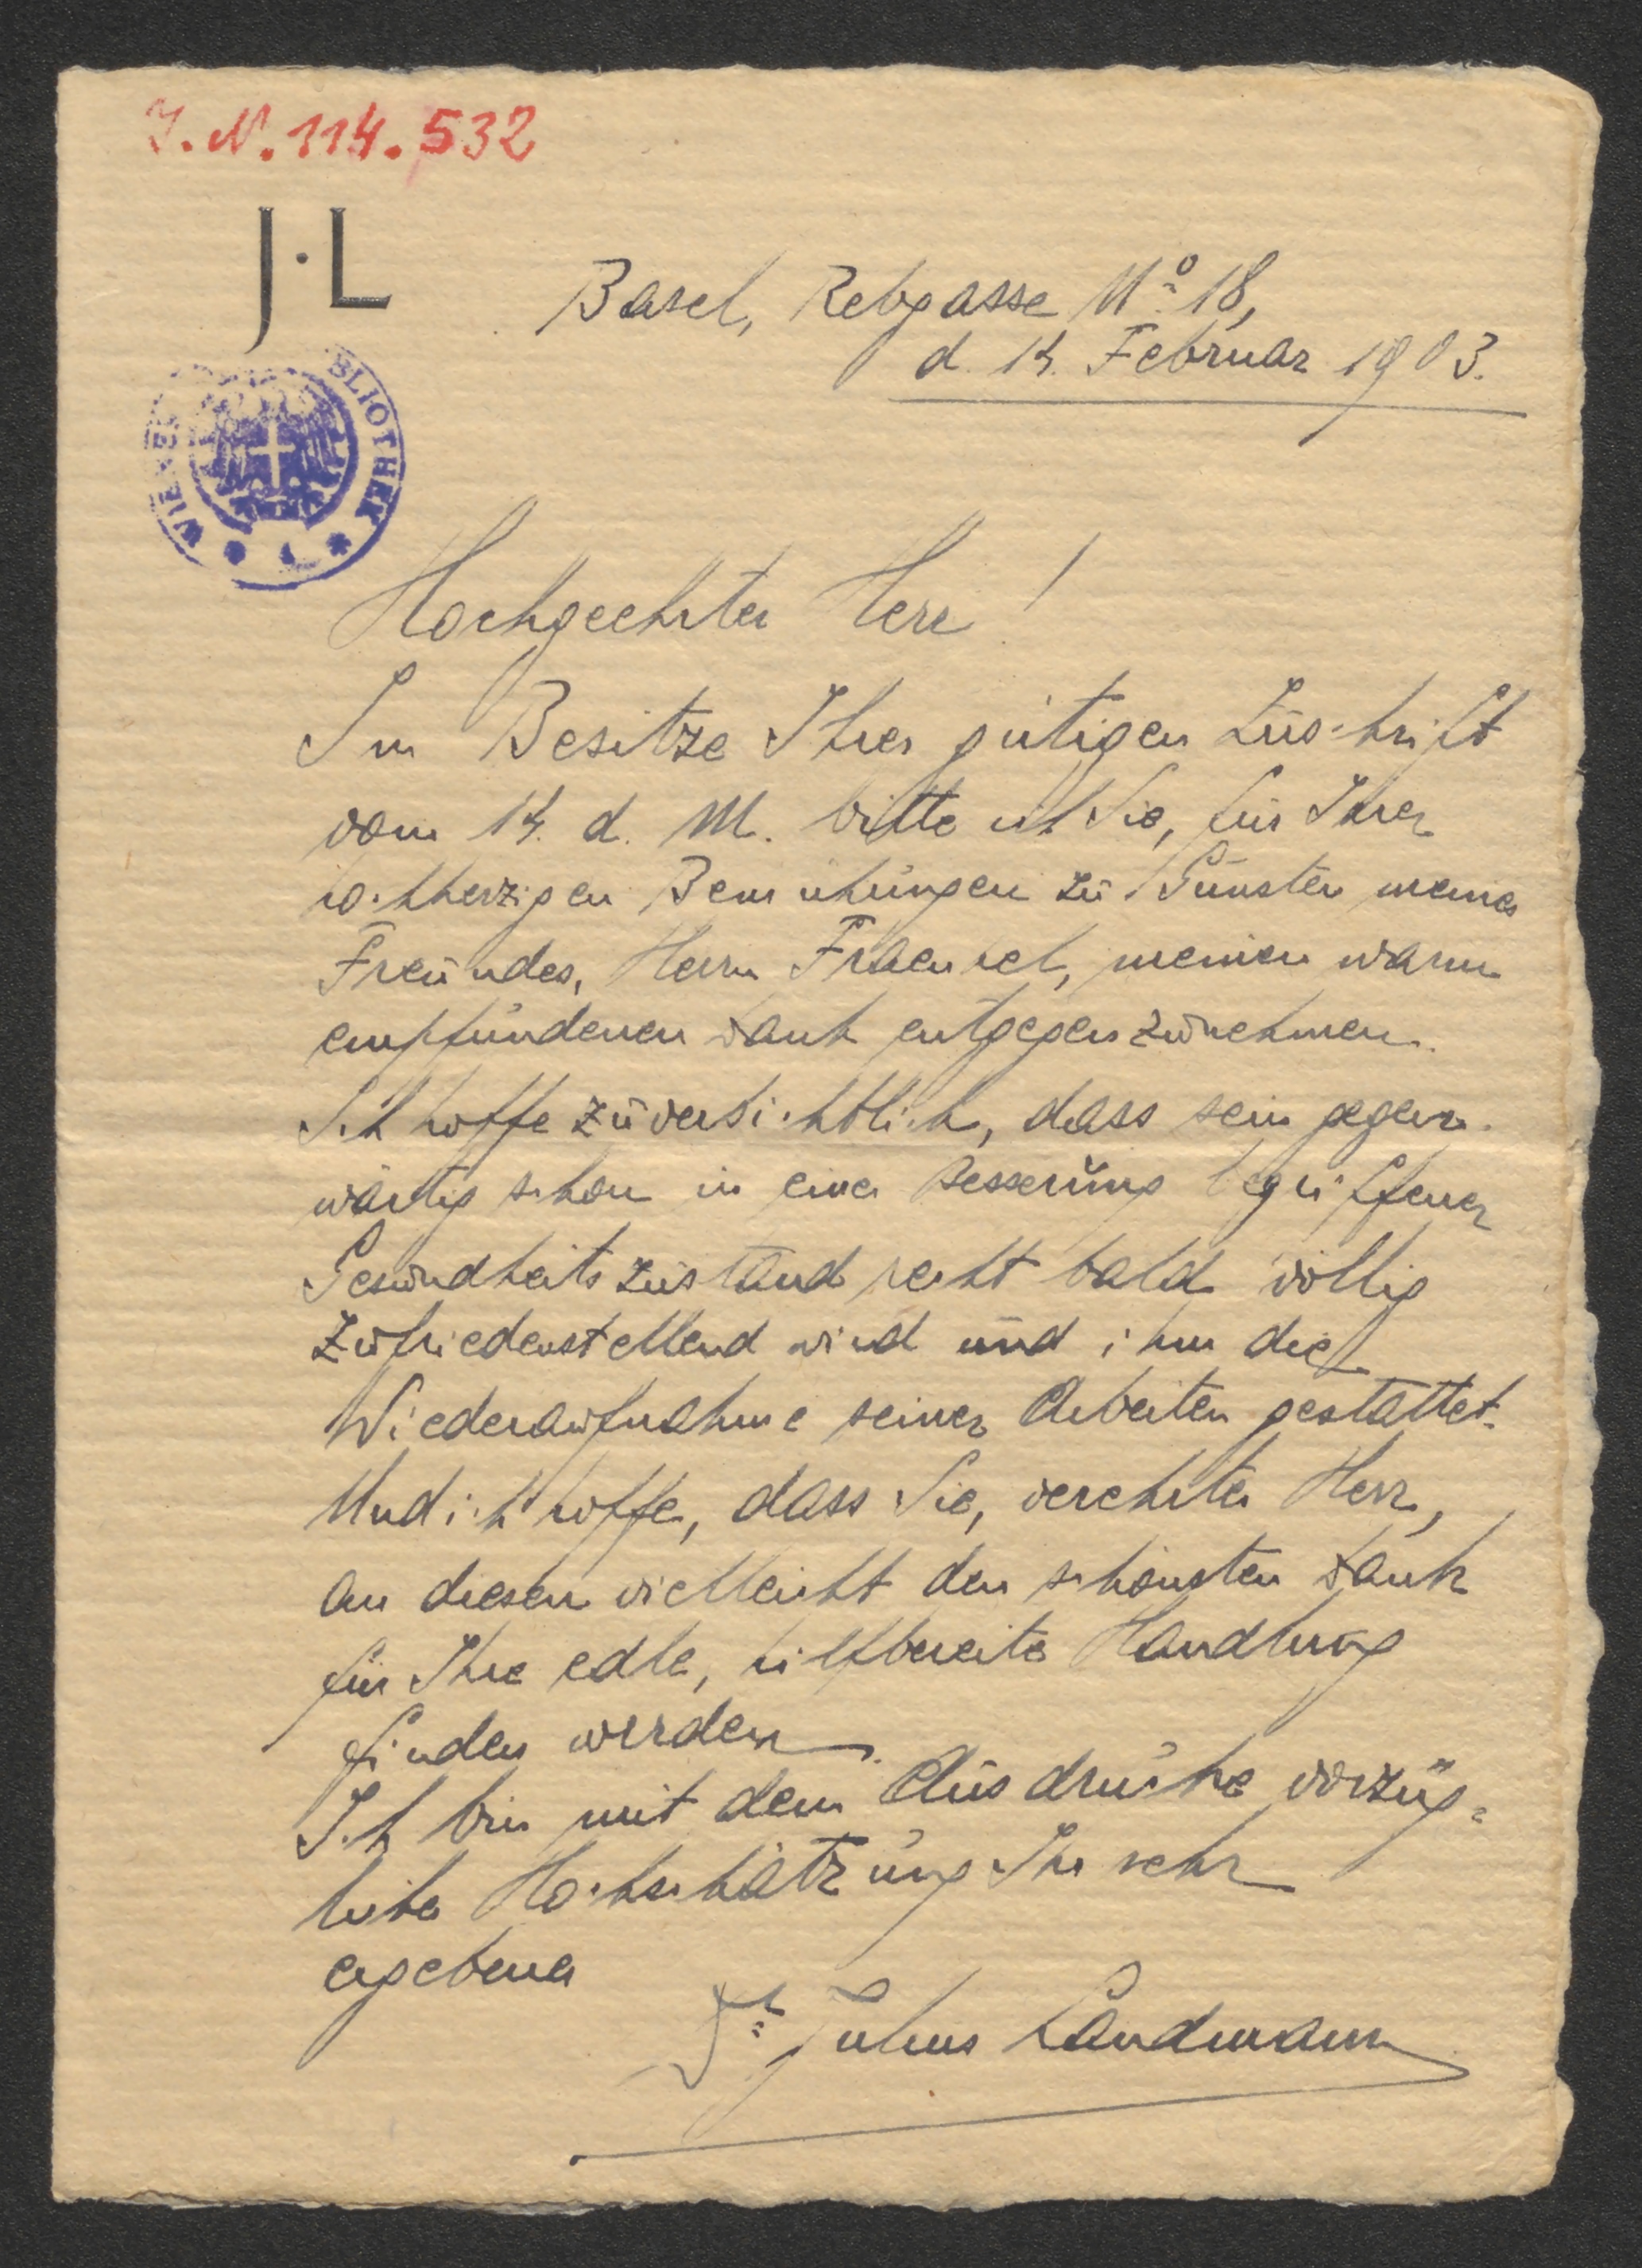 J.N. 114.532
J·L
WIENER BIBLIOTHEK
Basel, Rebgasse No 18,
d. 14. Februar 1903.
Hochgeehrter Herr!
Im Besitze Ihrer gütigen Zuschrift
vom 14. d. M. bitte ich Sie, für Ihre
hochherzigen Bemühungen zu Gunsten meines
Freundes, Herrn Fraenkel, meinen warm
empfundenen Dank entgegenzunehmen.
Ich hoffe zuversichtlich, dass sein gegen-
wärtig schon in einer Besserung begriffener
Gesundheitszustand recht bald völlig
zufriedenstellend wird und ihm die
Wiederaufnahme seiner Arbeiten gestattet.
Und ich hoffe, dass Sie, verehrter Herr,
an diesem vielleicht den schönsten Dank
für Ihre edle, hilfbereite Handlung
finden werden.
Ich bin mit dem Ausdrucke vorzüg-
licher Hochschätzung Ihr sehr
ergebener
Dr. Julius Landmann